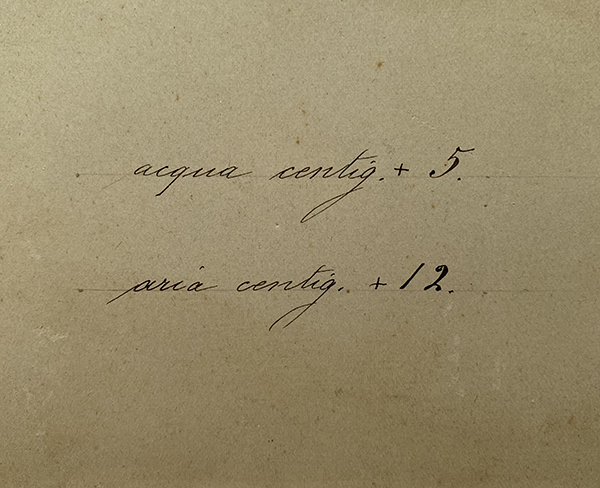 acqua centig. + 5.
aria centig. + 12.